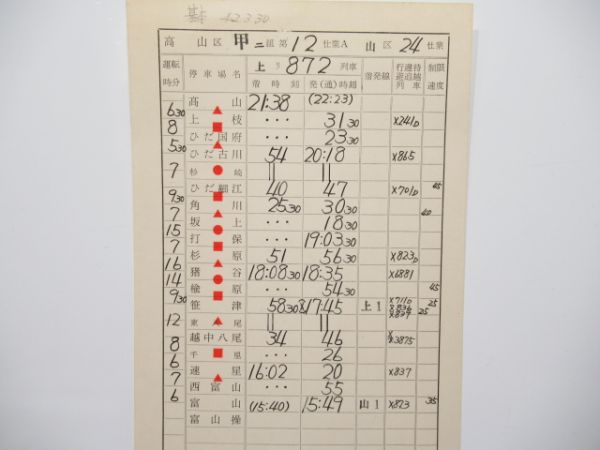 42.3.30
高 山区 甲 ニ組第 12 仕業A 山区 24 仕業
運転時分 停車場名 上り 872 列車 着発線 行違待避追越列車 制限速度
着時刻 発(通)時刻
高山 21:38 (22:23)
6 30
上枝 ... 31 30 ×241D
8
ひだ国府 ... 23 30
5 30
ひだ古川 54 20:18 ×865
杉崎 || ||
7
ひだ細江 40 47 ×701D 45
9 30
角川 25 30 30 30
7 40
坂上 ... 18 30
15
打保 ... 19:03 30
7
杉原 51 56 30 ×823D
16
猪谷 18:08 30 18:35 ×6881
14
楡原 ... 54 30 45
9 30
笹津 58 30 17:45 上1 ×711D 25
25
東八尾 || ||
12
越中八尾 34 46 ×3875
8
千里 ... 26
6
速星 16:02 20 ×837
7
西富山 ... 55
6
富山 (15:40) 15:49 山1 ×873 35
富山操